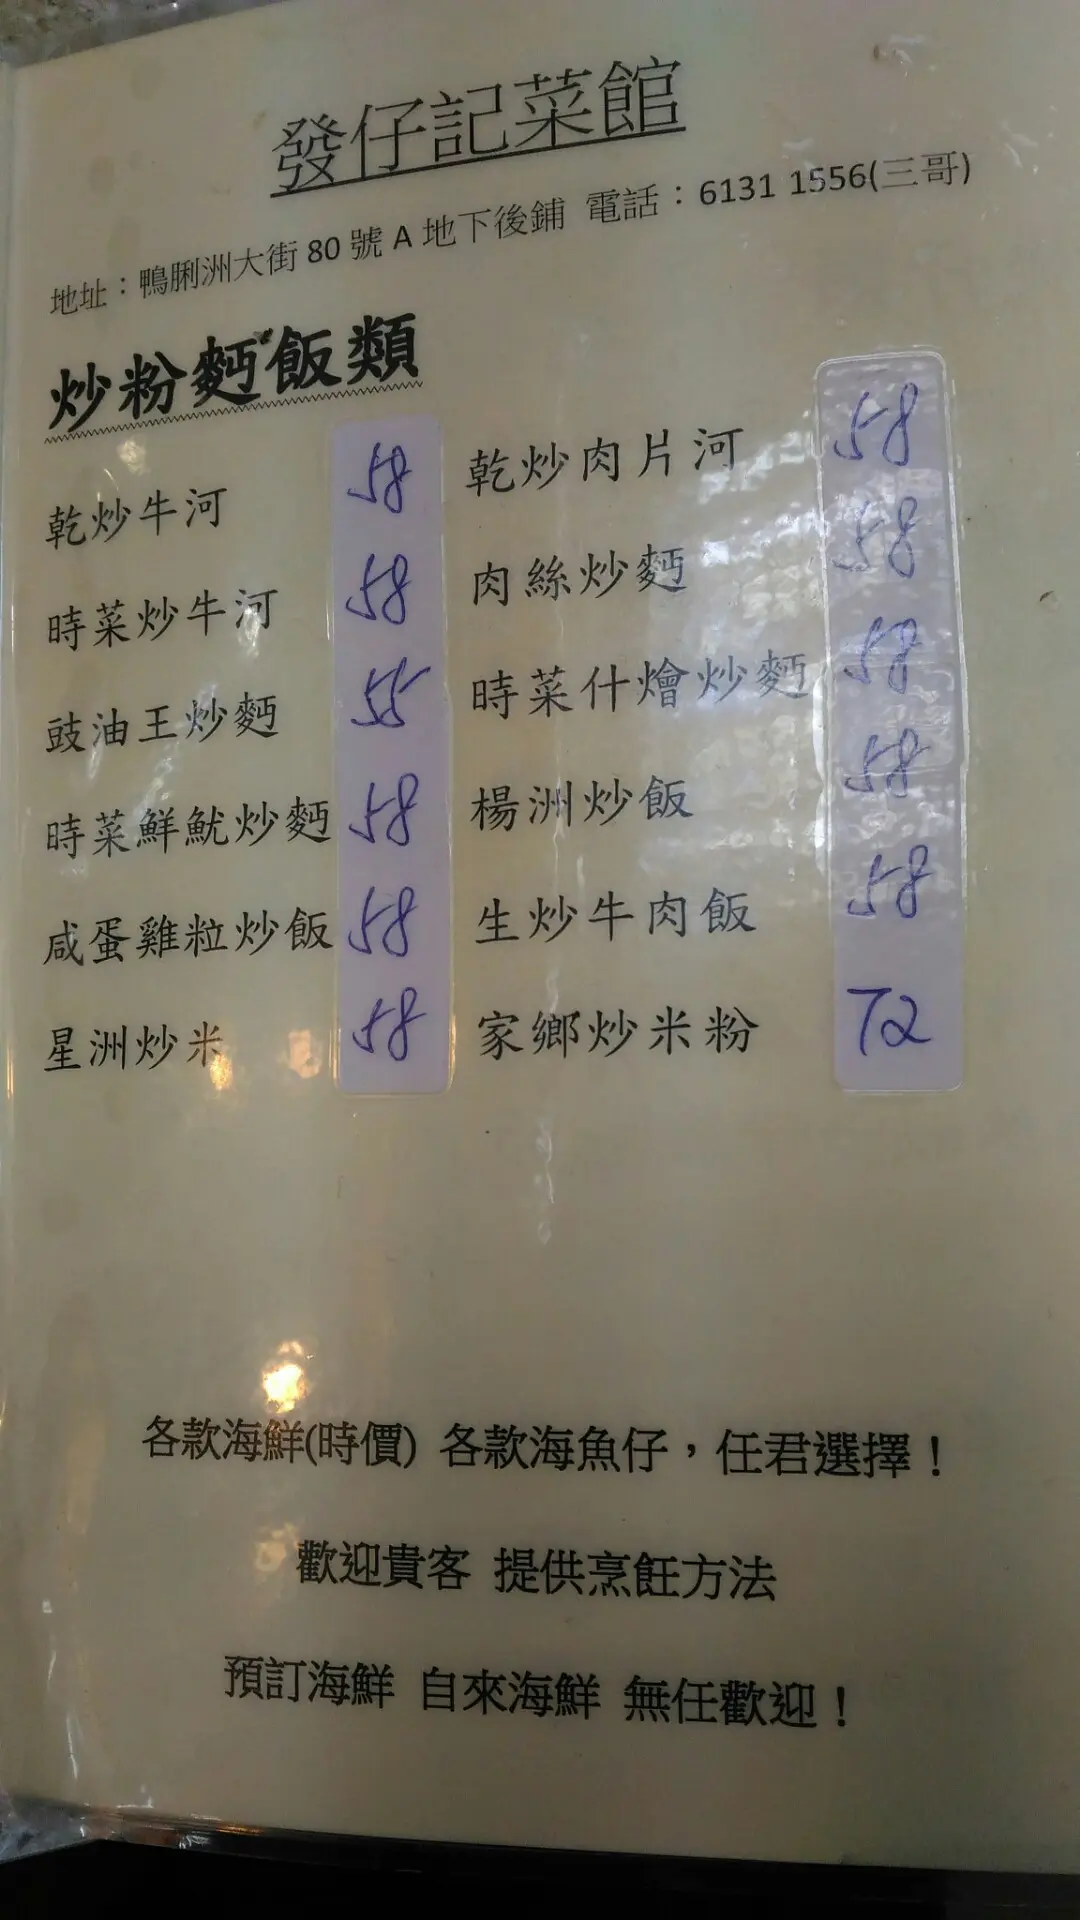 發仔記菜館
地址：鴨脷洲大街 80 號 A 地下後鋪 電話：6131 1556(三哥)
炒粉麪飯類
乾炒牛河 58 乾炒肉片河 58
時菜炒牛河 58 肉絲炒麪 58
豉油王炒麪 55 時菜什燴炒麪 58
時菜鮮魷炒麪 58 楊洲炒飯 58
咸蛋雞粒炒飯 58 生炒牛肉飯 58
星洲炒米 58 家鄉炒米粉 72
各款海鮮(時價) 各款海魚仔，任君選擇！
歡迎貴客 提供烹飪方法
預訂海鮮 自來海鮮 無任歡迎！